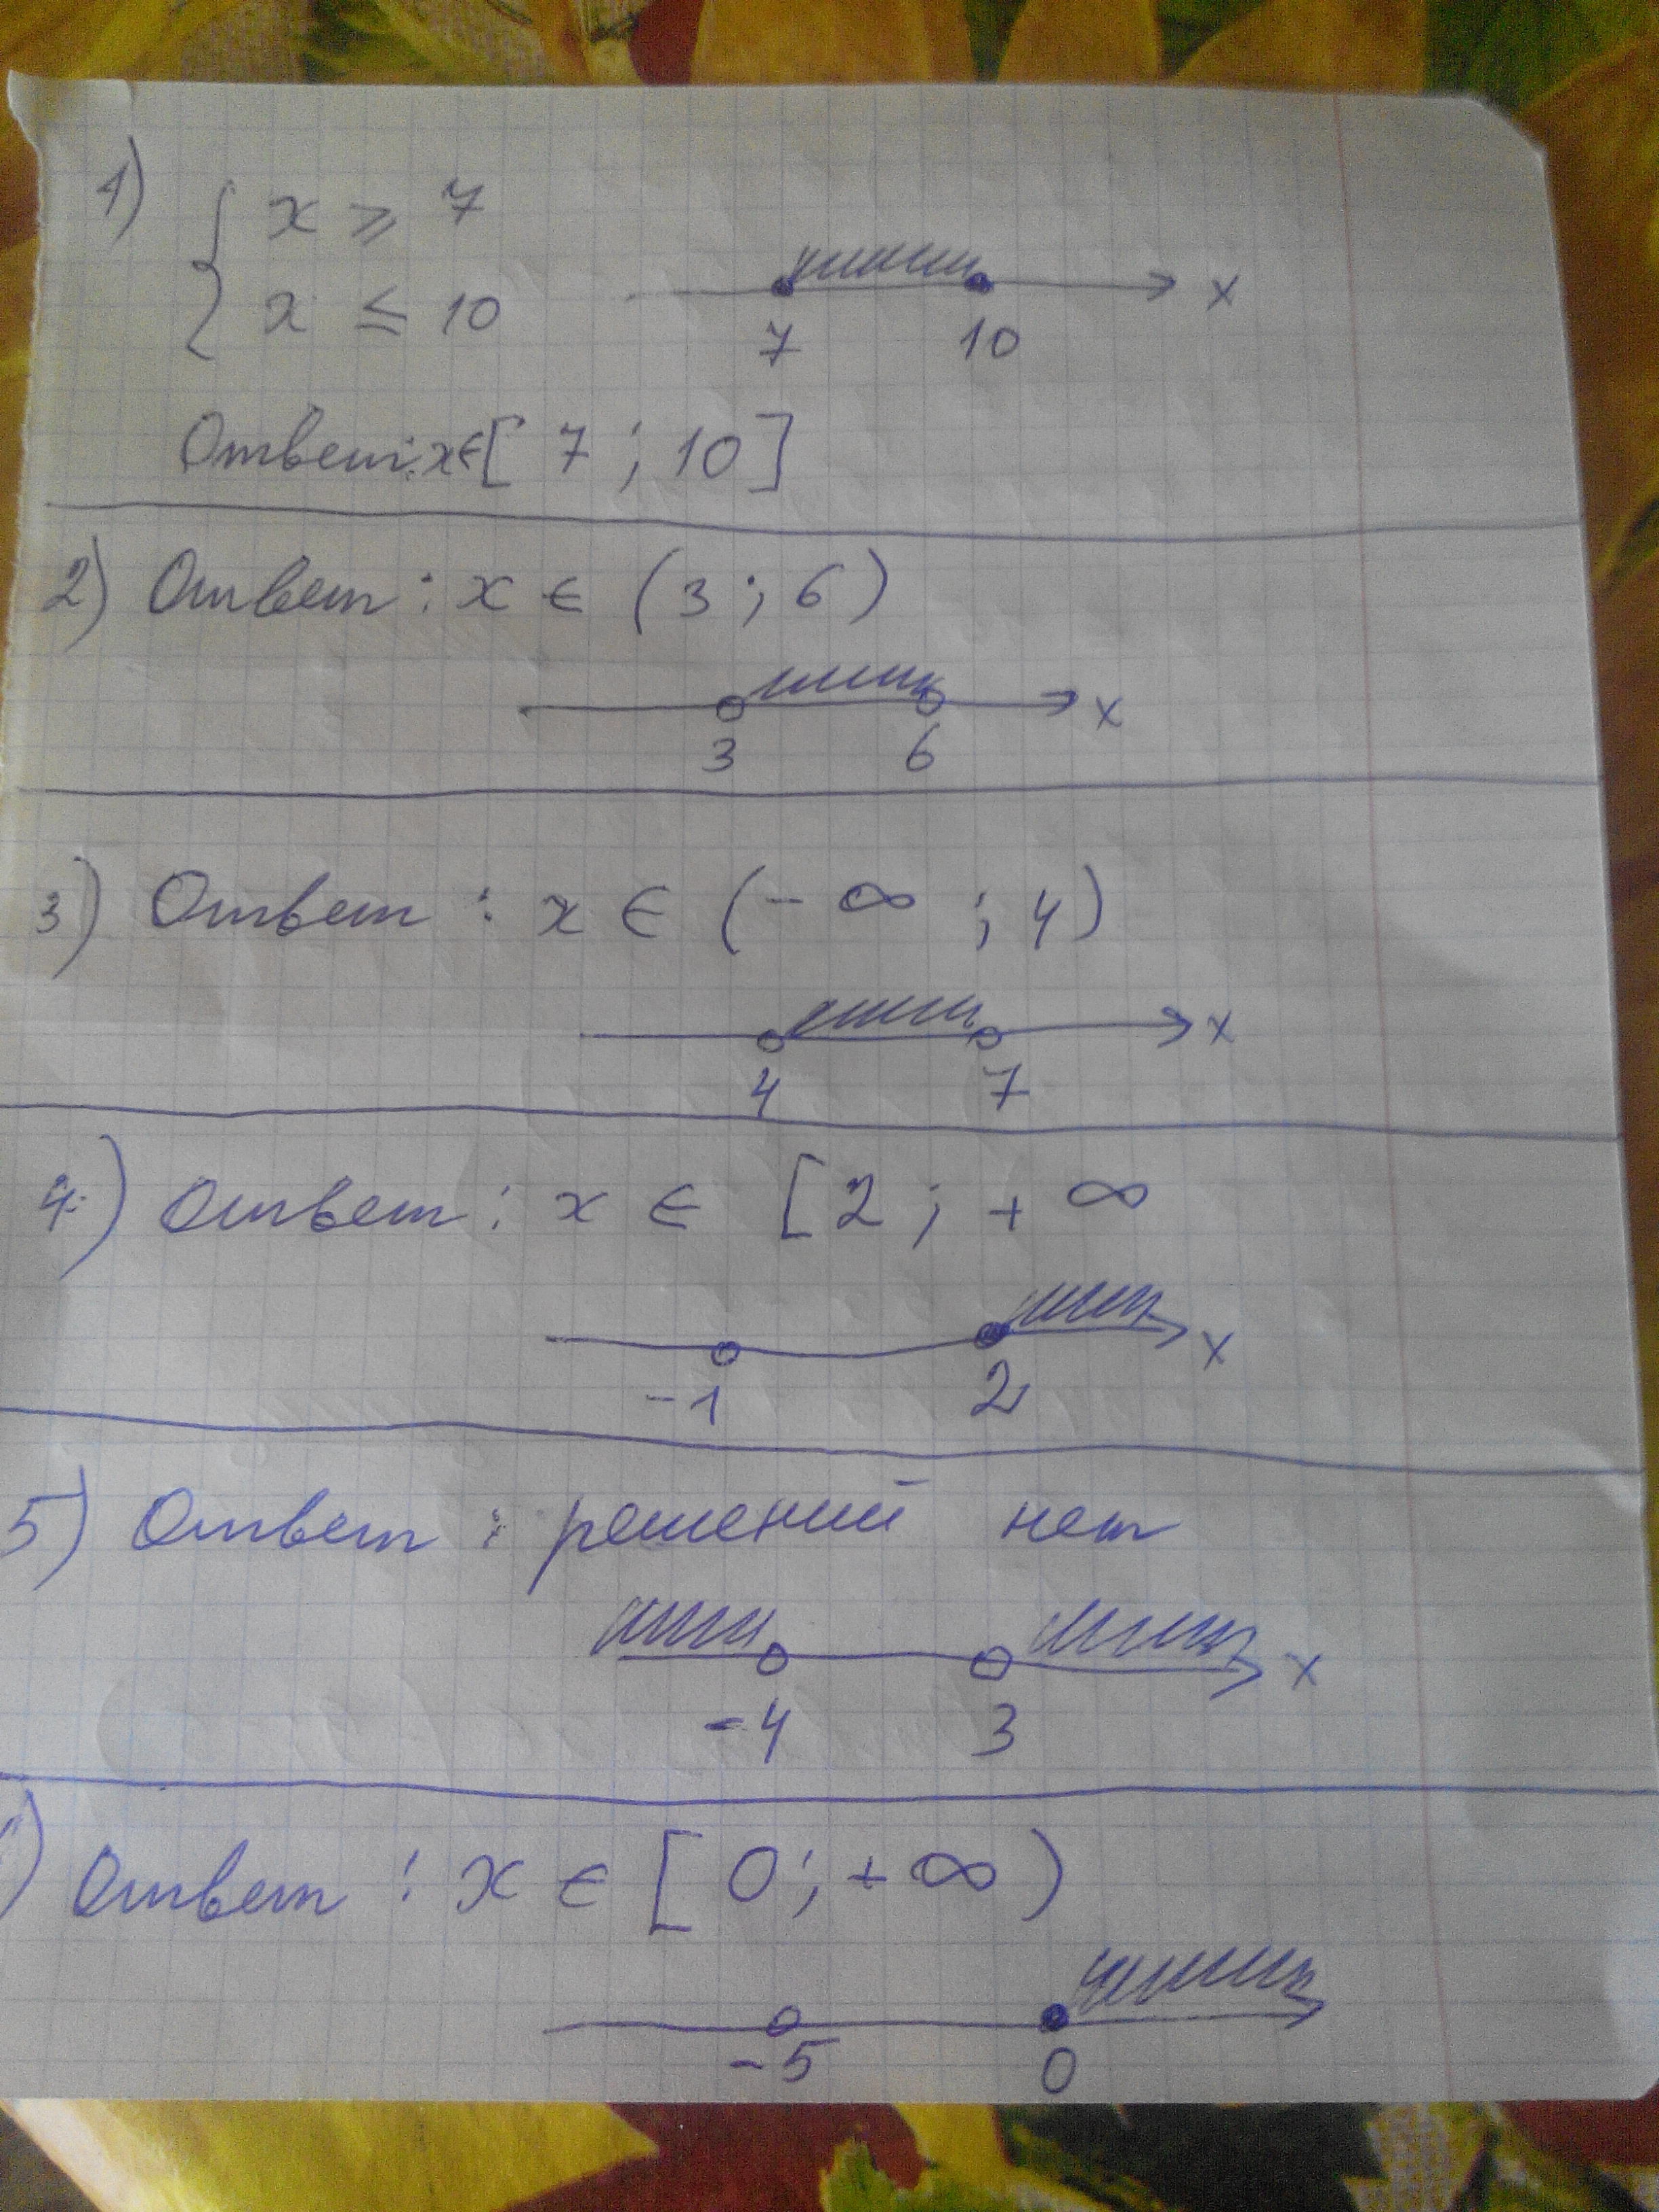 1) { x ⩾ 7
x ≤ 10
7 10 x
Ответ: x∈[ 7 ; 10 ]
2) Ответ : x ∈ ( 3 ; 6 )
3 6 x
3) Ответ : x ∈ ( - ∞ ; 4 )
4 7 x
4) Ответ : x ∈ [ 2 ; + ∞
-1 2 x
5) Ответ : решений нет
-4 3 x
) Ответ : x ∈ [ 0 ; + ∞ )
-5 0